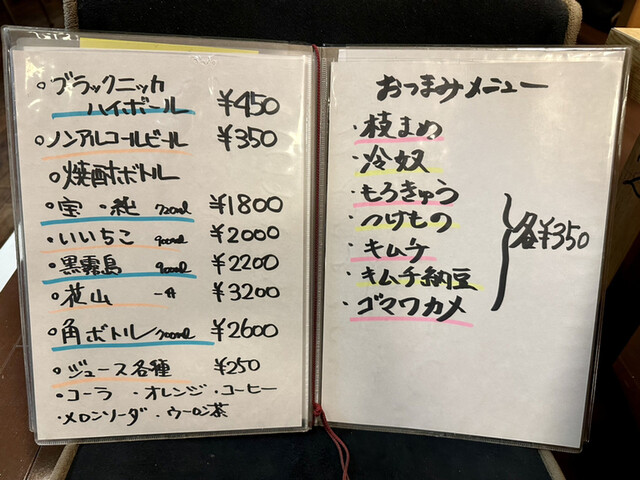 。ブラックニッカ
ハイボール ¥450
。ノンアルコールビール ¥350
。焼酎ボトル
。宝・純 720ml ¥1800
。いいちこ 900ml ¥2000
。黒霧島 900ml ¥2200
。花山 一升 ¥3200
。角ボトル 700ml ¥2600
。ジュース各種 ¥250
・コーラ ・オレンジ ・コーヒー
・メロンソーダ ・ウーロン茶
おつまみメニュー
・枝まめ
・冷奴
・もろきゅう
・つけもの
・キムチ
・キムチ納豆
・ゴマワカメ
各¥350